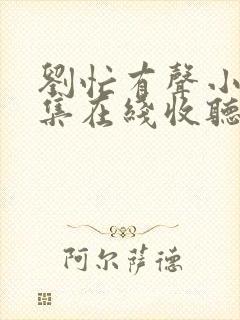 劉忙有聲小
集在綫收聽
阿尔萨德